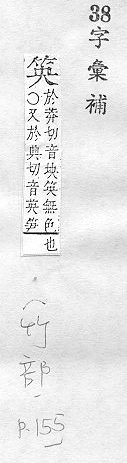 38 字彙補
䇦
於莽切音坱䇦無色
○又於興切音英笋也
(竹部
p.155